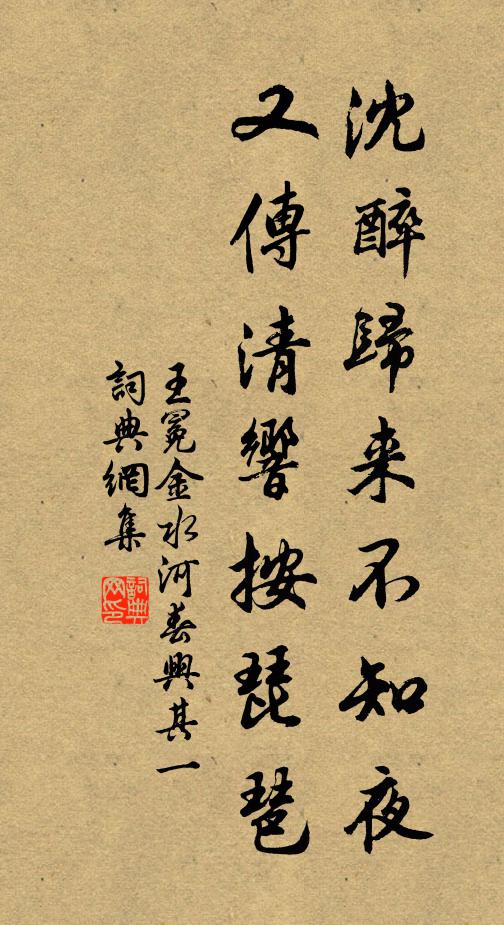 沈醉歸来不知夜
又傳清響按琵琶
王冕金水河春興其一
詞典網集
詞典
网印